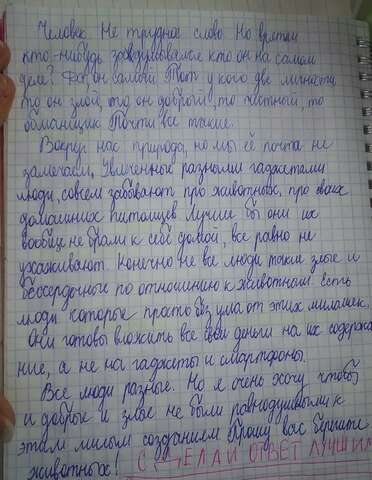 Человек. Не трудное слово. Но врятли
кто-нибудь задумывался кто он на самом
деле? Да, он самый Тот у кого две личности
то он злой, то он добрый, то честный, то
обманщик. Почти все такие.
Вокруг нас природа, но мы её почти не
замечаем. Увлеченные разными гаджетами
люди, совсем забывают про животных, про своих
домашних питомцев. Лучше бы они их
вообще не брали к себе домой, все равно не
ухаживают. Конечно не все люди такие злые и
бессердечные по отношению к животным. Есть
люди которые просто без ума от этих милашек.
Они готовы вложить все свои деньги на их содержа
ние, а не на гаджеты и смартфоны.
Все люди разные. Но я очень хочу чтобы
и добрые и злые не были равнодушными к
этим милым созданиям. Прошу вас берегите
животных! СДЕЛАЙ ОТВЕТ ЛУЧШИМ